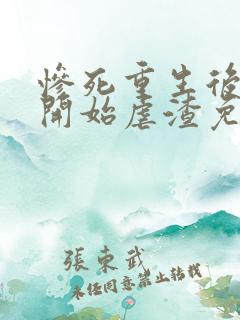 慘死重生後
開始虐渣免
張東武
未經同意禁止轉載